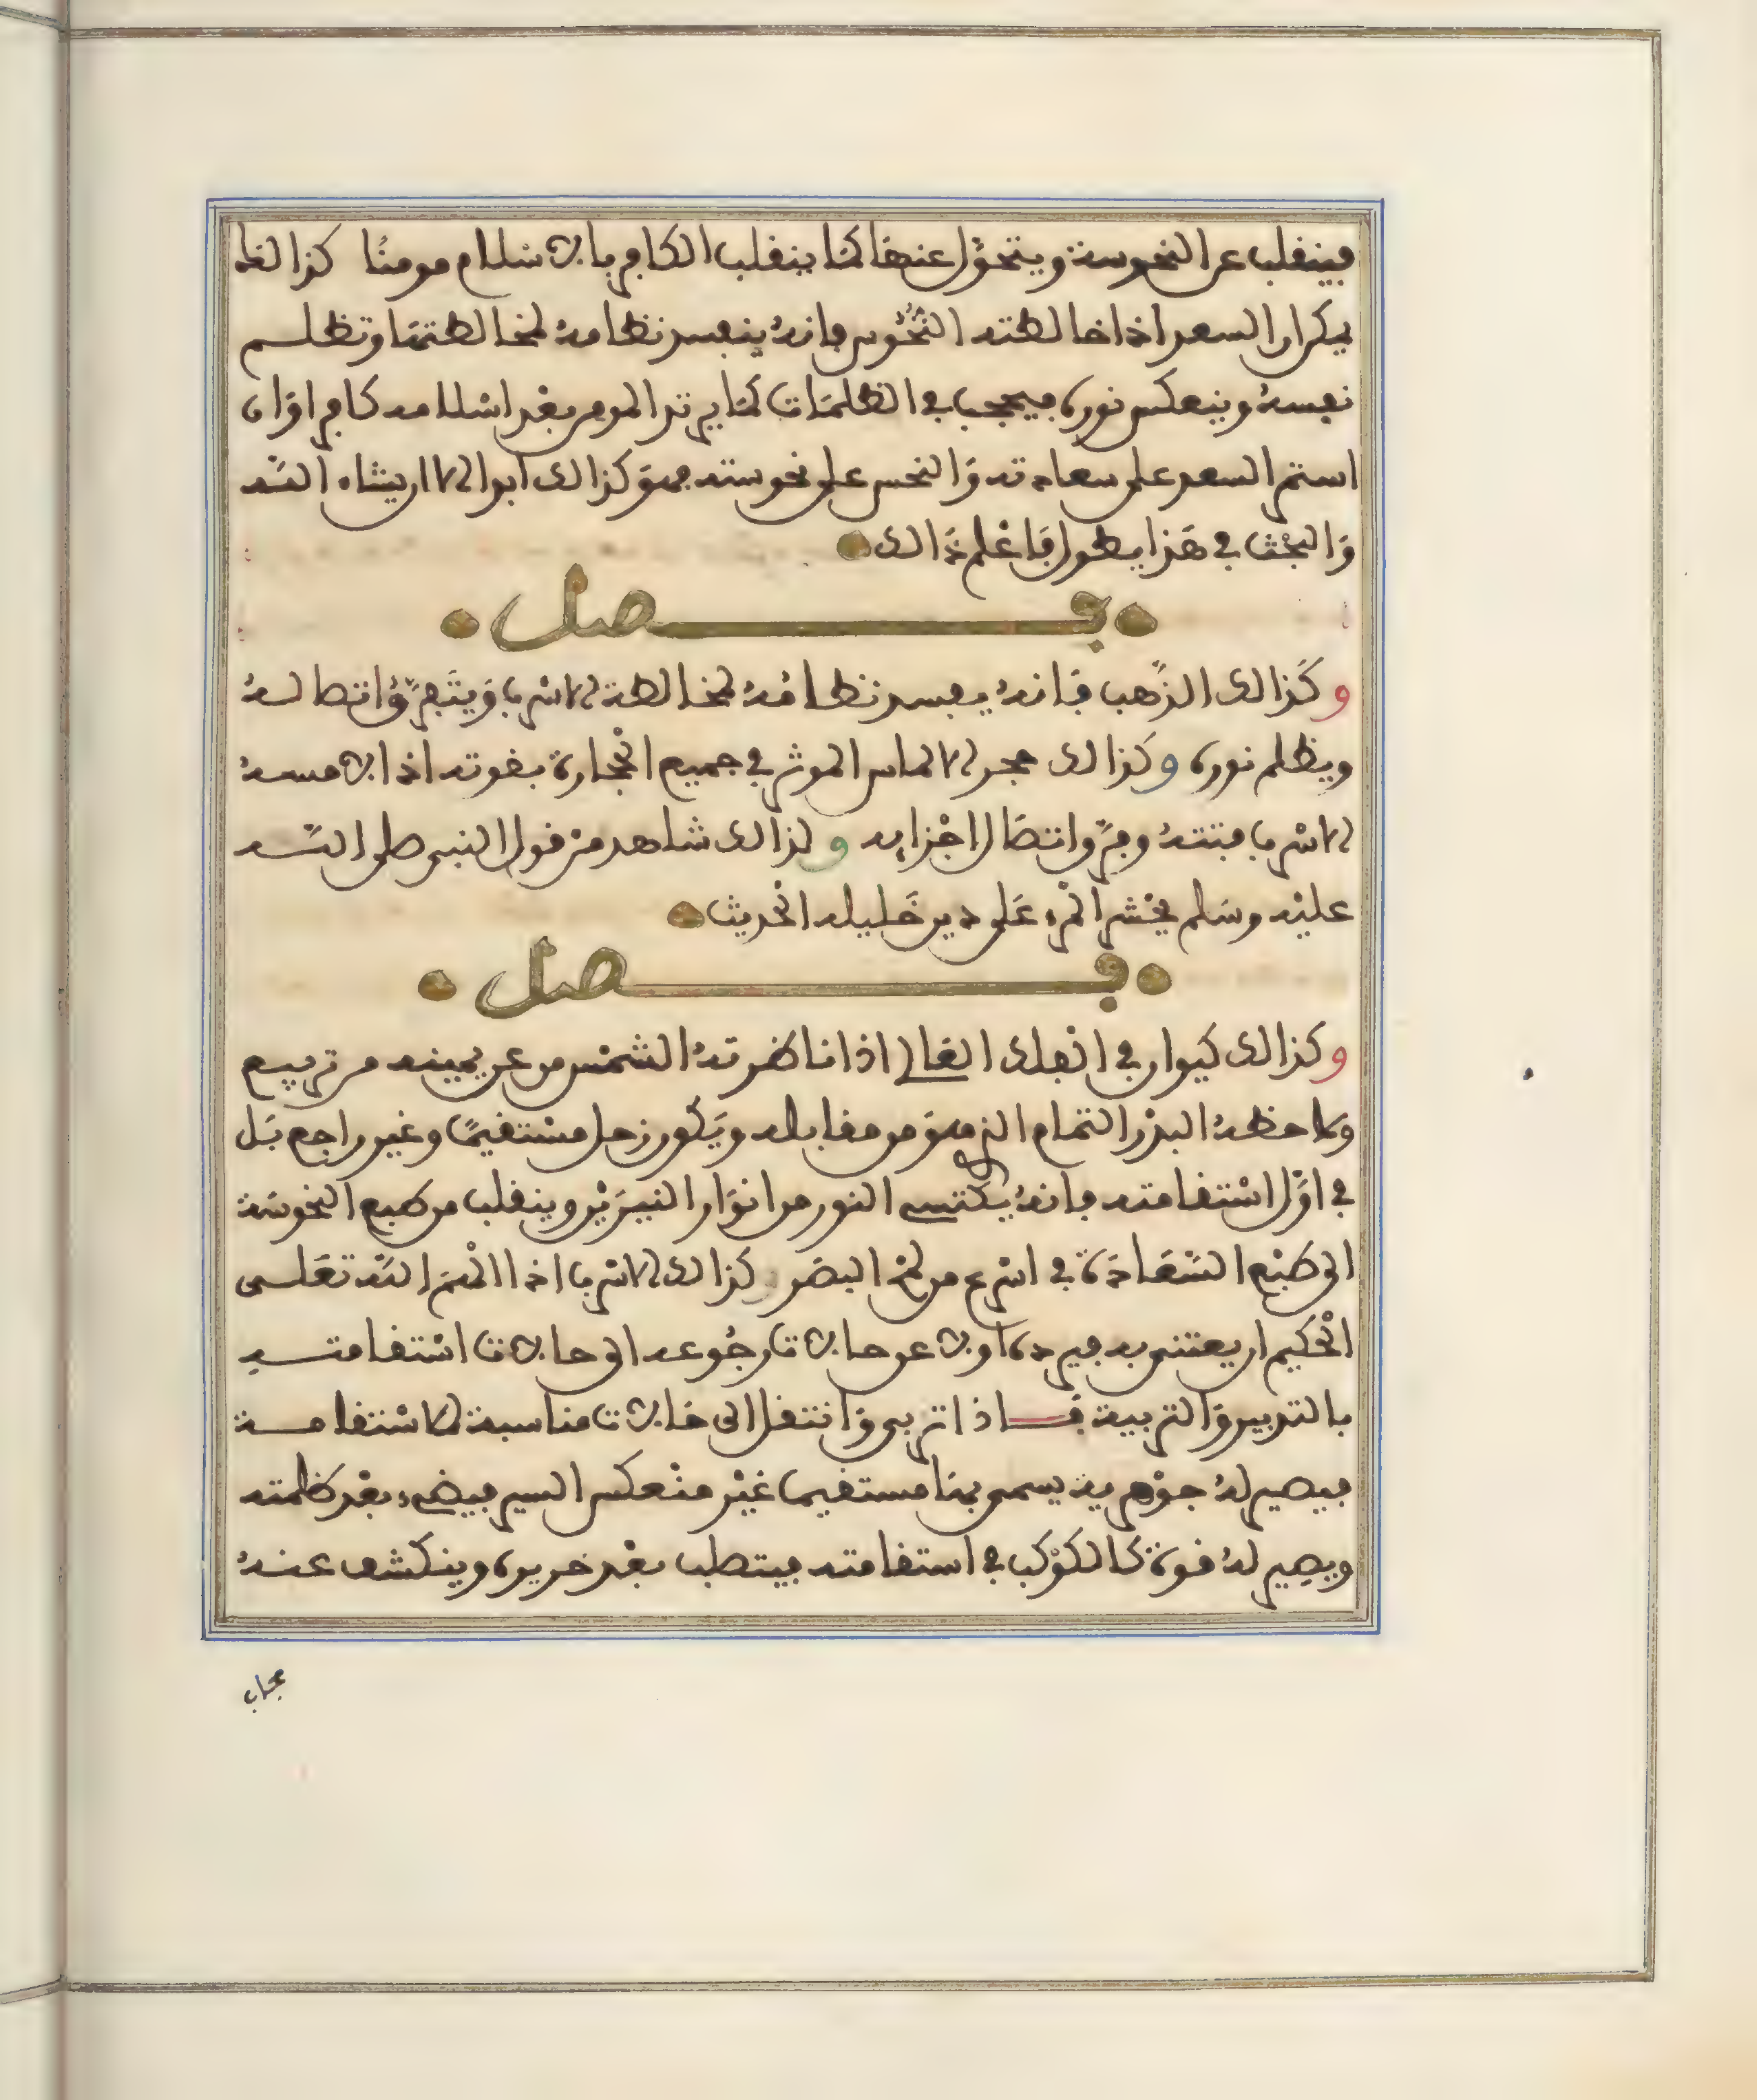 فينقلب عن النحوسة ويتحول عنها كما ينقلب الكافر بالاسلام مومنا كذالك
يكون السعد اذا خالطته النحوس فانه ينفسد نظامه لمخالطتها وتظلم
نفسه وينعكس نوره فيحجب في الظلمات كما يرتد المومن بعد اسلامه كافرا وان
استمر السعد على سعادته والنحس على نحوسته فهو كذالك ابدا الا ان يشاء الله
والبحث في هذا يطول فاعلم ذالك
فصل
وكذالك الذهب فانه يفسد نظامه لمخالطة الاسرب ويتفرق اتصاله
ويظلم نوره وكذالك حجر الالماس الموثر في جميع الحجارة بقوته اذا لامسه
الاسرب فتته وفرق اتصال اجزايه ولذالك شاهد من قول النبي صلى الله
عليه وسلم يحشر المرء على دين خليله الحديث
فصل
وكذالك كيوان في الفلك العالي اذا ناظرته الشمس من عن يمينه من تربيع
ولاحظه البدر التمام الذي هو من مقابله ويكون زحل مستقيما وغير راجع بل
في اول استقامته فانه يكتسي النور من انوار النيرين وينقلب من طبع النحوسة
الى طبع السعادة في اسرع من لمح البصر كذالك الاسرب اذا الهم الله تعلى
الحكيم ان يعتني به فيرده اولا عن حالات رجوعه الى حالات استقامته
بالتدبير والتربية فاذا تربى وانتقل الى حالات مناسبة للاستقامة
فيصير له جوهرية يسمى بها مستقيما غير منعكس السير فيضيء بعد ظلمته
ويصير له قوة كالكوكب في استقامته فيتصلب بعد خريره وينكشف عنه
حجاب